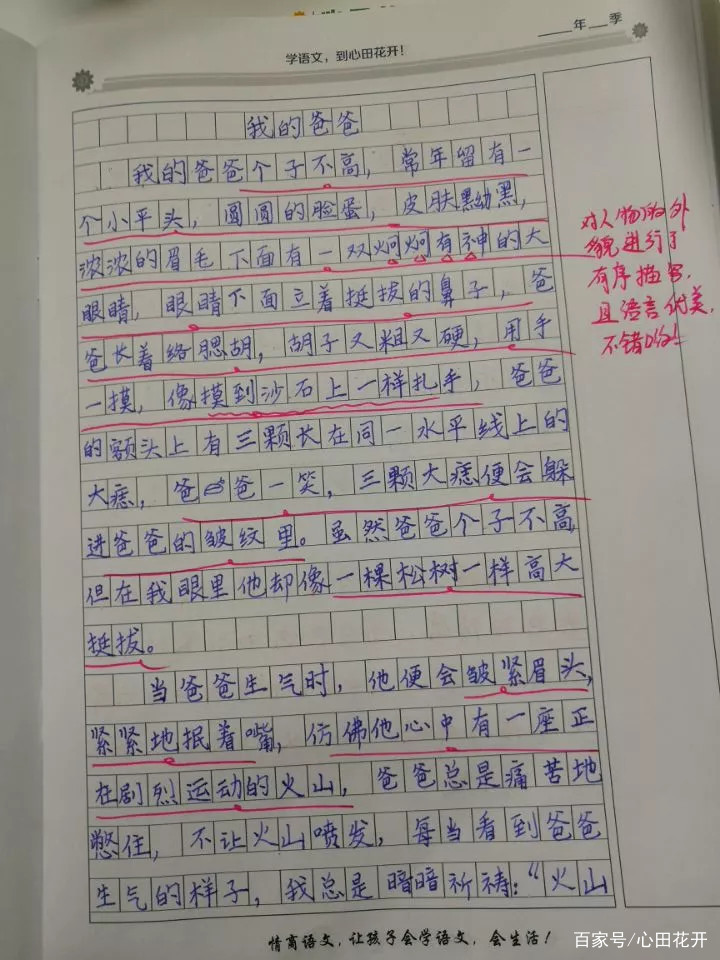 ____年___季
学语文，到心田花开！
我的爸爸
我的爸爸个子不高，常年留有一
个小平头，圆圆的脸蛋，皮肤黝黑，
浓浓的眉毛下面有一双炯炯有神的大
眼睛，眼睛下面立着挺拔的鼻子，爸
爸长着络腮胡，胡子又粗又硬，用手
一摸，像摸到沙石上一样扎手，爸爸
的额头上有三颗长在同一水平线上的
大痣，爸爸一笑，三颗大痣便会躲
进爸爸的皱纹里。虽然爸爸个子不高，
但在我眼里他却像一棵松树一样高大
挺拔。
当爸爸生气时，他便会皱紧眉头，
紧紧地抿着嘴，仿佛他心中有一座正
在剧烈运动的火山，爸爸总是痛苦地
憋住，不让火山喷发，每当看到爸爸
生气的样子，我总是暗暗祈祷：“火山
对人物的外
貌进行了
有序描写，
且语言优美，
不错哟！
情商语文，让孩子会学语文，会生活！
百家号/心田花开